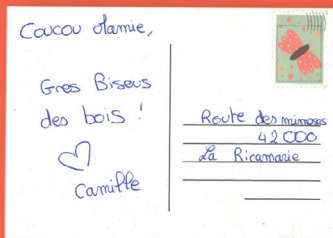 Coucou Mamie,
Gros Bisous
des bois !
Camille
Route des mimosas
42000
La Ricamarie